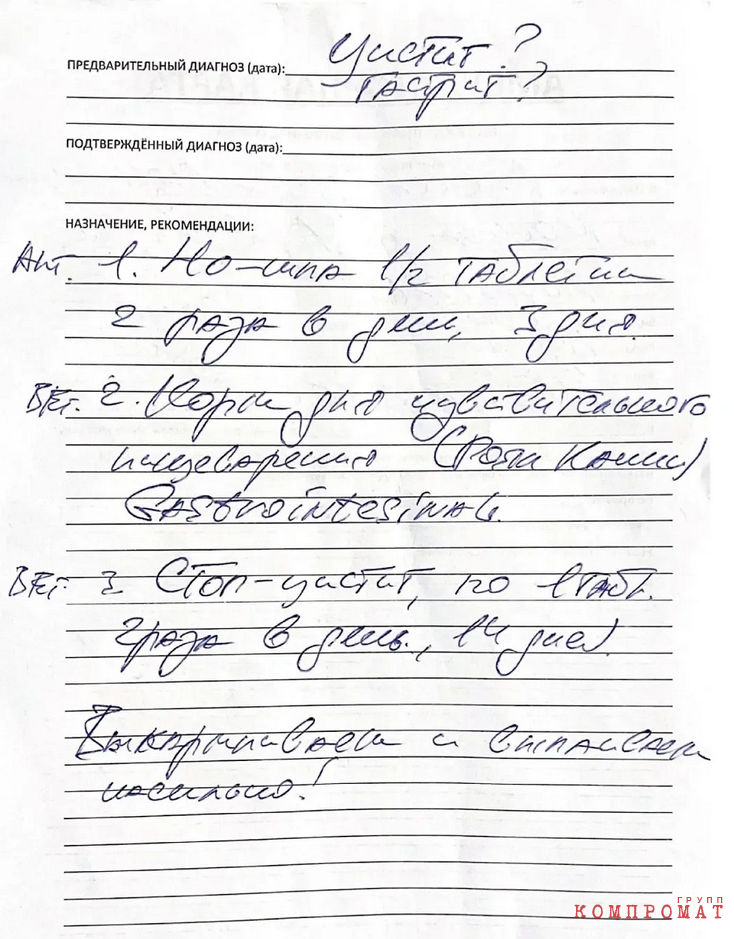 Цистит?,
ПРЕДВАРИТЕЛЬНЫЙ ДИАГНОЗ (дата):
Гастрит?
ПОДТВЕРЖДЁННЫЙ ДИАГНОЗ (дата):
НАЗНАЧЕНИЕ, РЕКОМЕНДАЦИИ:
Апт. 1. Но-шпа 1/2 таблетки
2 раза в день, 3 дня.
Вет. 2. Корм для чувствительного
пищеварения (Роял Канин)
Gastrointesinal.
Вет. 3 Стоп-цистит, по 1 табл.
2 раза в день, 14 дней.
и выпаиваем
насильно!
ГРУПП
КОМПРОМАТ